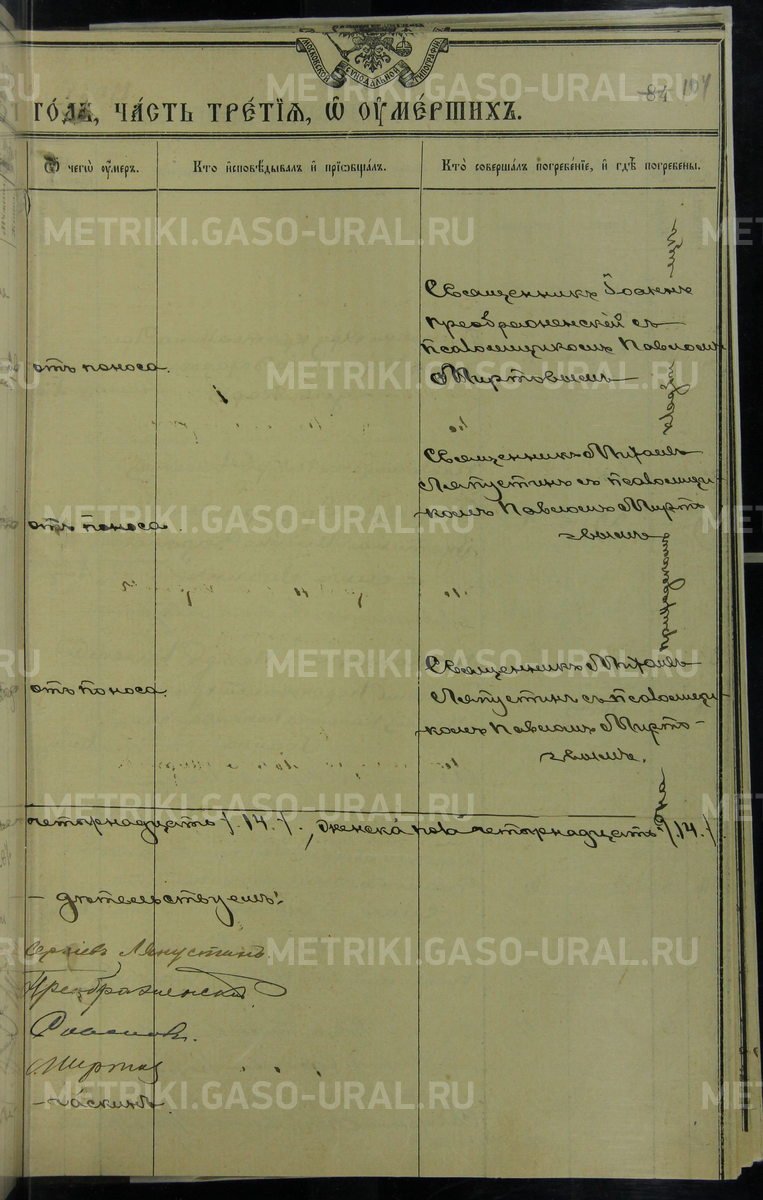 МОСКОВСКОЙ СѴНОДАЛЬНОЙ ТИПОГРАФІИ
84 104
ГО́ДЪ, ЧА́СТЬ ТРЕ́ТІѦ, Ѡ ОУМЕ́РШИХЪ.
Ѿ чегѡ̀ оу҆́меръ.
Кто̀ и҆сповѣ́дывалъ и҆ прїѡбща́лъ.
Кто̀ соверша́лъ погребе́нїе, и҆ гдѣ̀ погребены̀.
отъ поноса.
Священникъ Іоаннъ
Преображенскій съ
псаломщикомъ Павломъ
Миртовымъ
отъ поноса.
Священникъ Михаилъ
Ляпустинъ съ псаломщи-
комъ Павломъ Мирто
вымъ
отъ поноса.
Священникъ Михаилъ
Ляпустинъ съ псаломщи-
комъ Павломъ Мирто-
вымъ.
На приходскомъ
четырнадцать /.14./., женска пола четырнадцать /.14./.
дѣтельствуемъ:
Ляпустинъ
Преображенскій
Миртов
METRIKI.GASO-URAL.RU